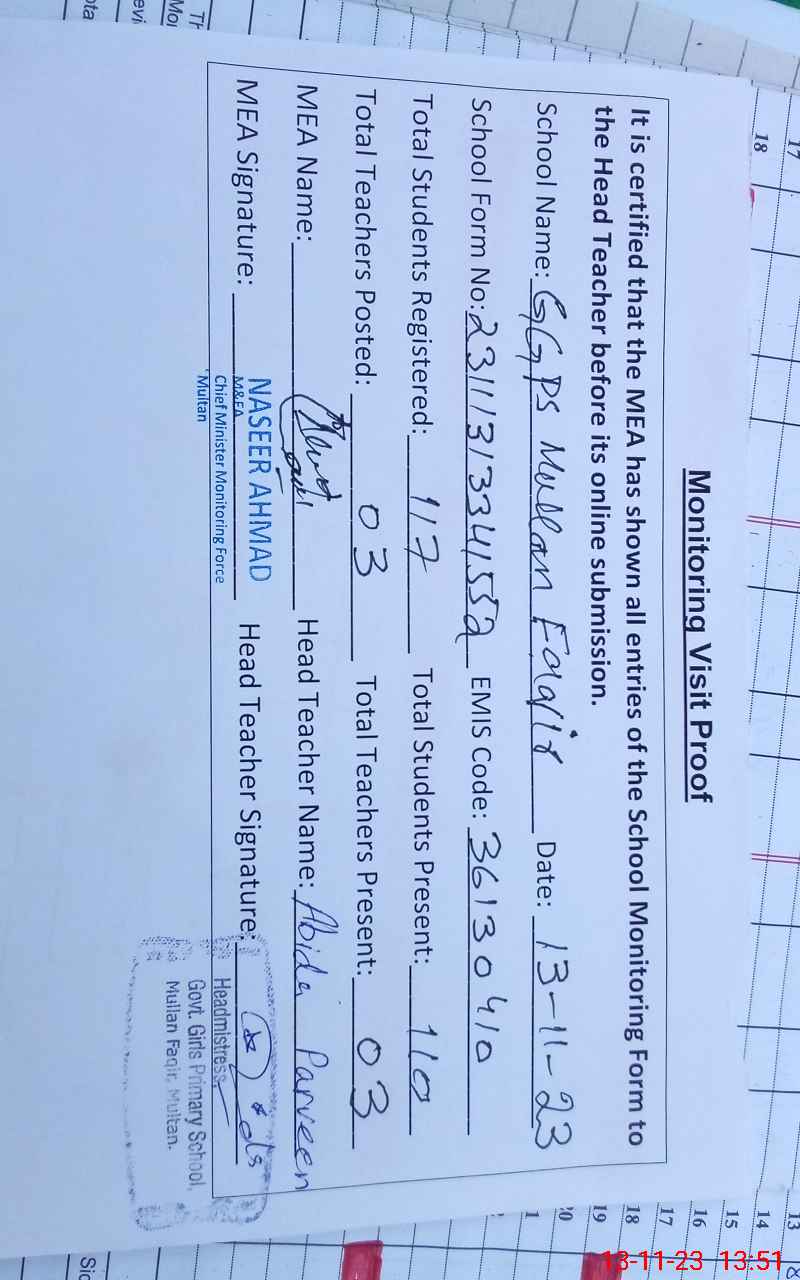 Monitoring Visit Proof
It is certified that the MEA has shown all entries of the School Monitoring Form to
the Head Teacher before its online submission.
School Name: GGPS Mullan Faqir Date: 13-11-23
School Form No: 23111313341552 EMIS Code: 36130410
Total Students Registered: 117 Total Students Present: 110
Total Teachers Posted: 03 Total Teachers Present: 03
MEA Name: Head Teacher Name: Abida Parveen
MEA Signature: NASEER AHMAD Head Teacher Signature:
M&EA
Chief Minister Monitoring Force
Multan
Headmistress
Govt. Girls Primary School,
Mullan Faqir, Multan.
17
18
13
14
15
16
17
18
19
20
1
13-11-23 13:51